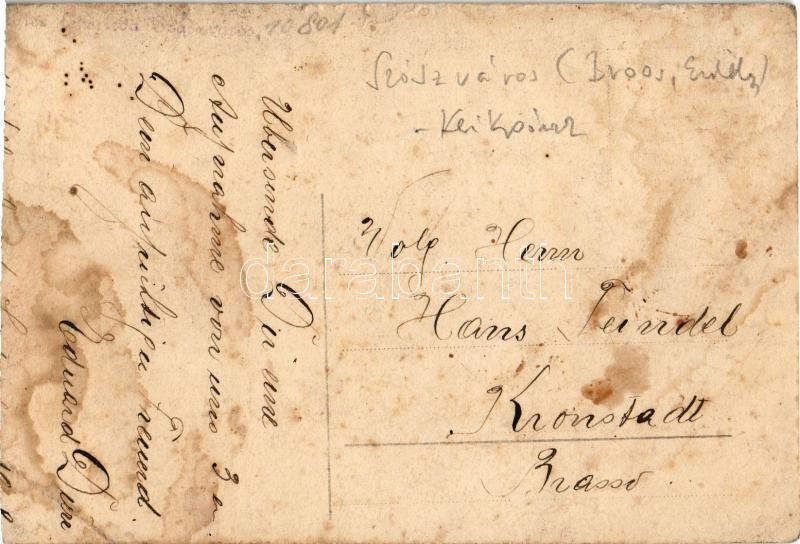 10801
Szászváros (Broos, Erdély)
Wolg. Herrn
Hans Teindel
Kronstadt
Brassó
Übersende Dir eine
Aufnahme von uns 3
Dein aufrichtiger Freund
Eduard
darabanth